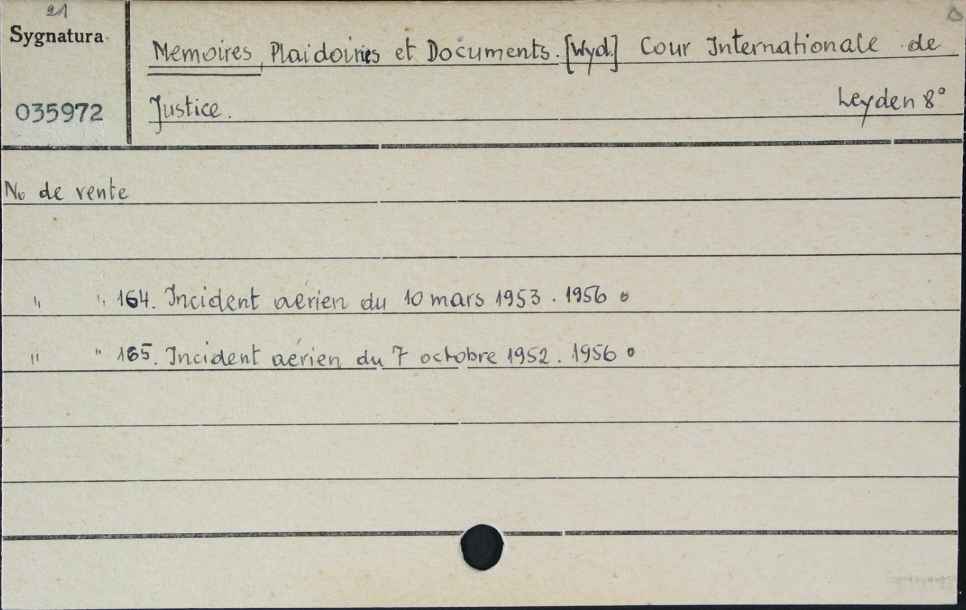 21
Sygnatura
Memoires, Plaidoiries et Documents. [Wyd.] Cour Internationale de
035972
Justice.
Leyden 8°
No de vente
" " 164. Incident aérien du 10 mars 1953. 1956 o
" " 165. Incident aérien du 7 octobre 1952. 1956 o